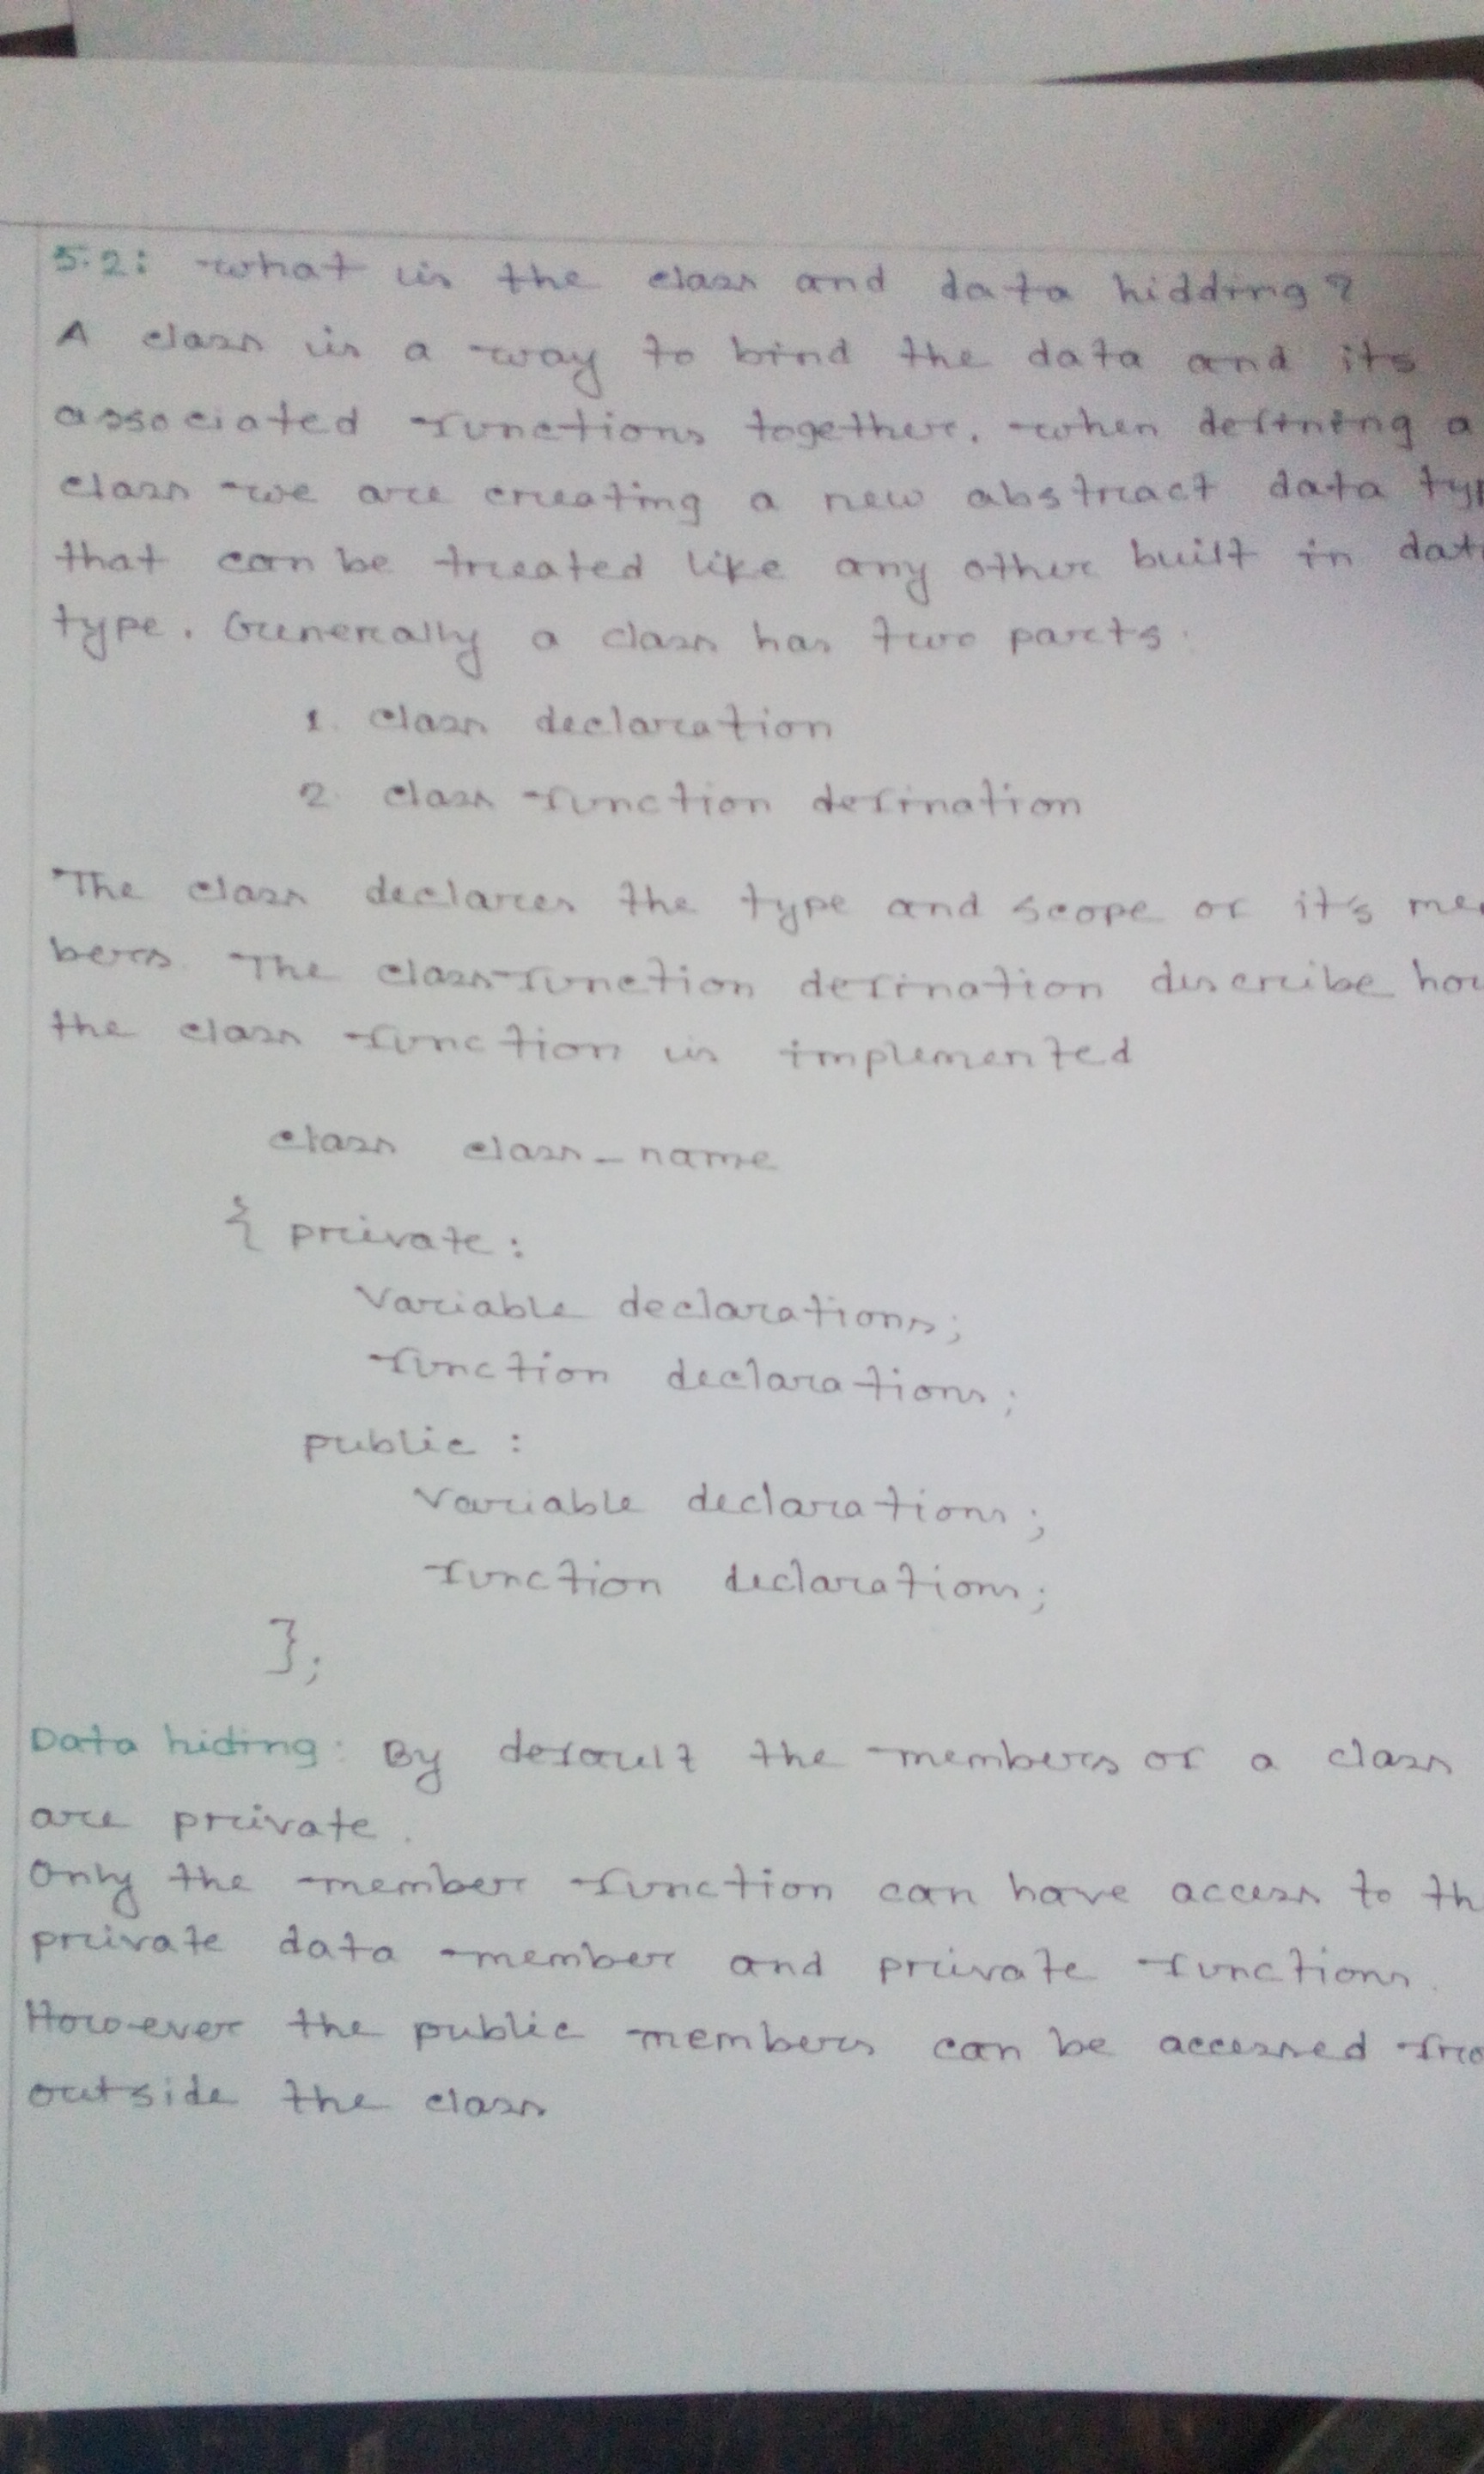 5.2: what is the class and data hidding?
A class is a way to bind the data and its
associated functions together. when defining a
class we are creating a new abstract data typ
that can be treated like any other built in dat
type. Generally a class has two parts.
1. class declaration
2. class function defination
The class declares the type and scope of it's mem
bers. The class function defination describe how
the class function is implemented
class class_name
{ private:
Variable declarations;
function declarations;
public :
Variable declarations;
function declarations;
};
Data hiding: By default the members of a class
are private.
Only the member function can have access to th
private data member and private functions.
However the public members can be accessed fro
outside the class